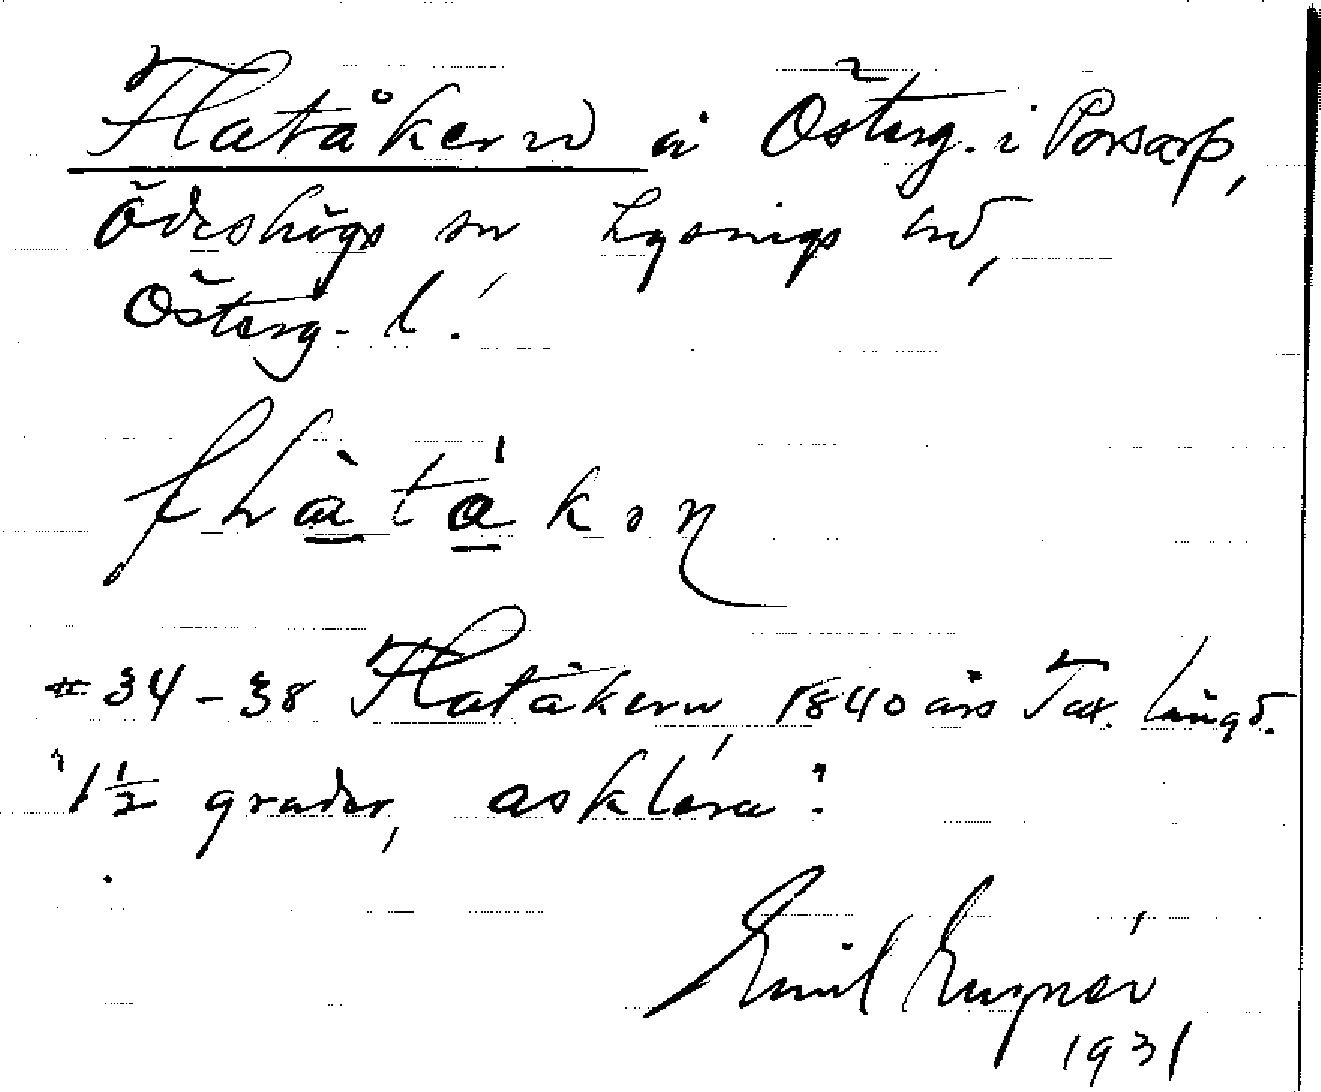 Flatåkern å Österg. i Porsarp,
Ödeshögs sn Lysings hd,
Österg. l.
flàtákɘn
#34-38 Flatåkern, 1840 års Tax. längd.
"1½ grader, asklera".
Emil
1931